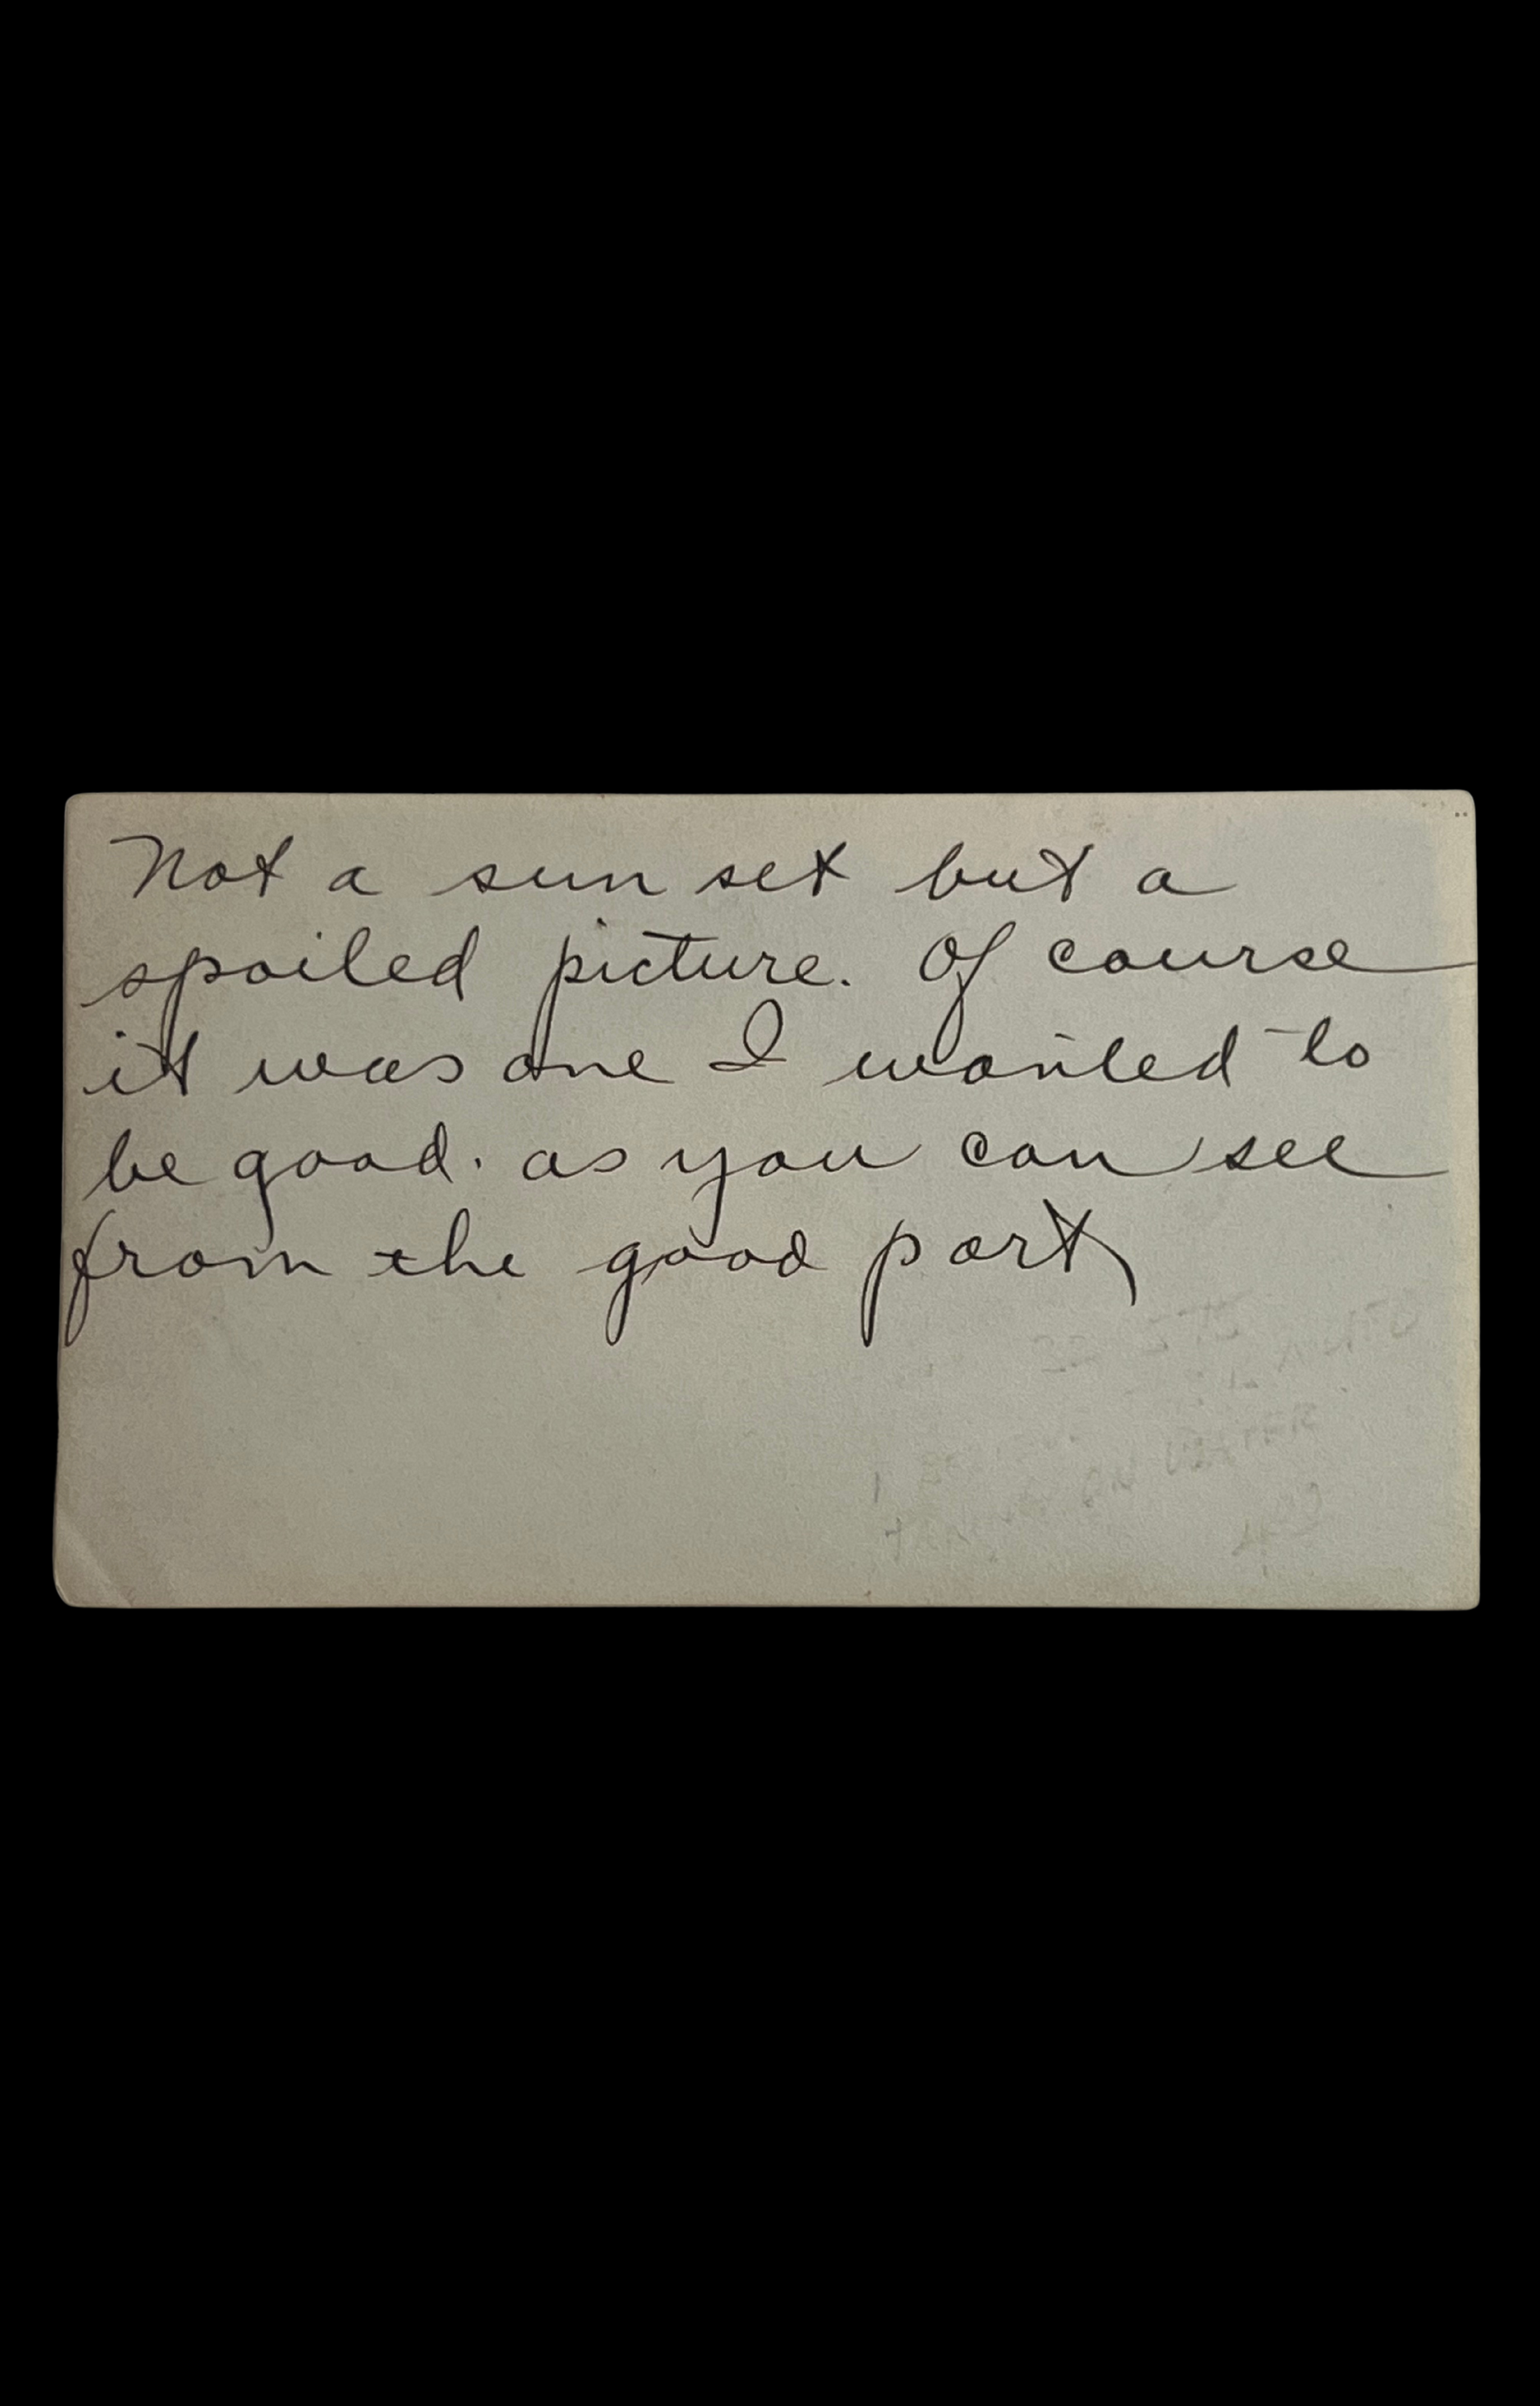 Not a sun set but a
spoiled picture. Of course
it was one I wanted to
be good. as you can see
from the good part